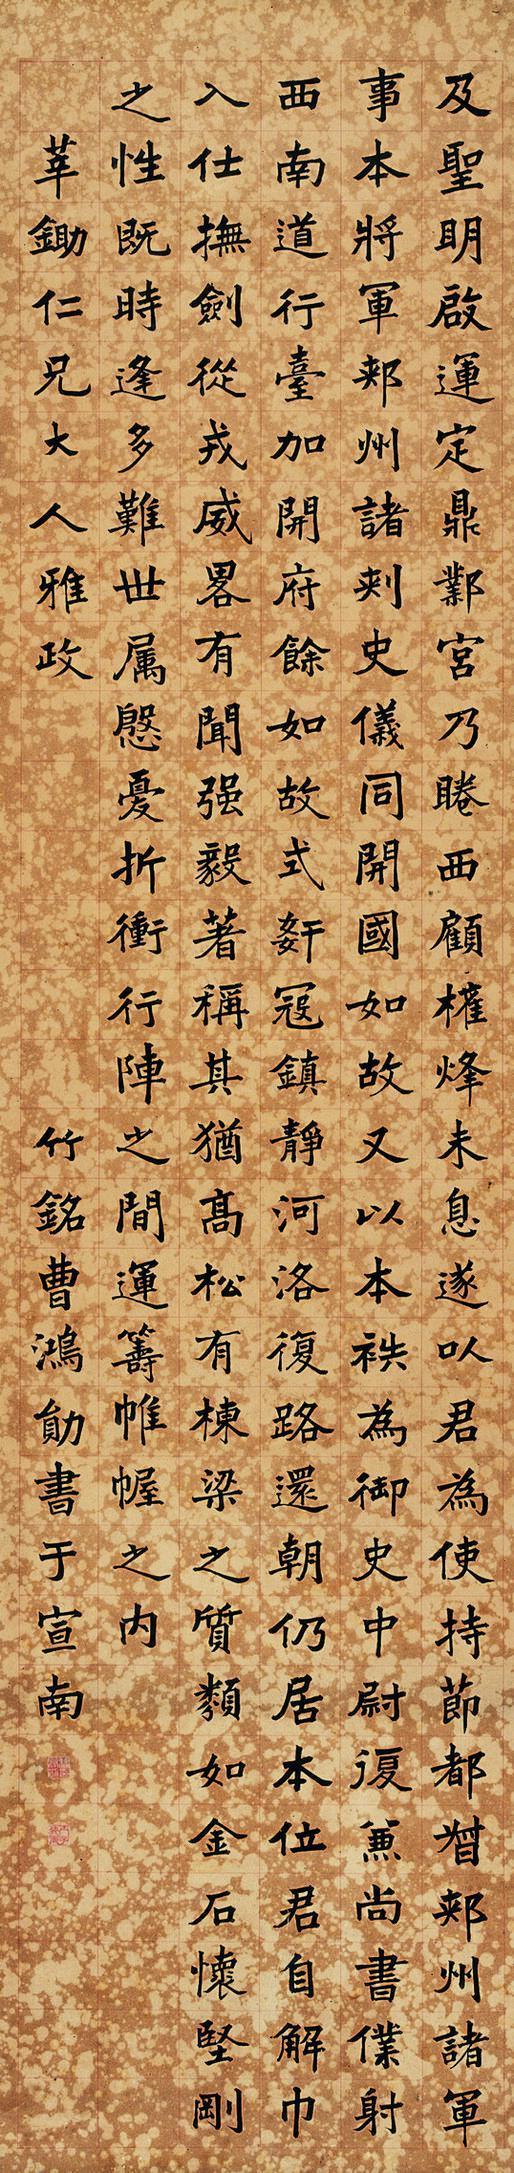 及聖明啟運定鼎鄴宮乃睠西顧權烽未息遂以君為使持節都督郟州諸軍
事本將軍郟州諸刺史儀同開國如故又以本袟為御史中尉復兼尚書僕射
西南道行臺加開府餘如故式姧冦鎮靜河洛復路還朝仍居本位君自解巾
入仕撫劍從戎威畧有聞强毅著稱其猶高松有棟梁之質類如金石懷堅剛
之性既時逢多難世属慇憂折衝行陣之間運籌帷幄之内
莘鋤仁兄大人雅政
竹銘曹鴻勛書于宣南